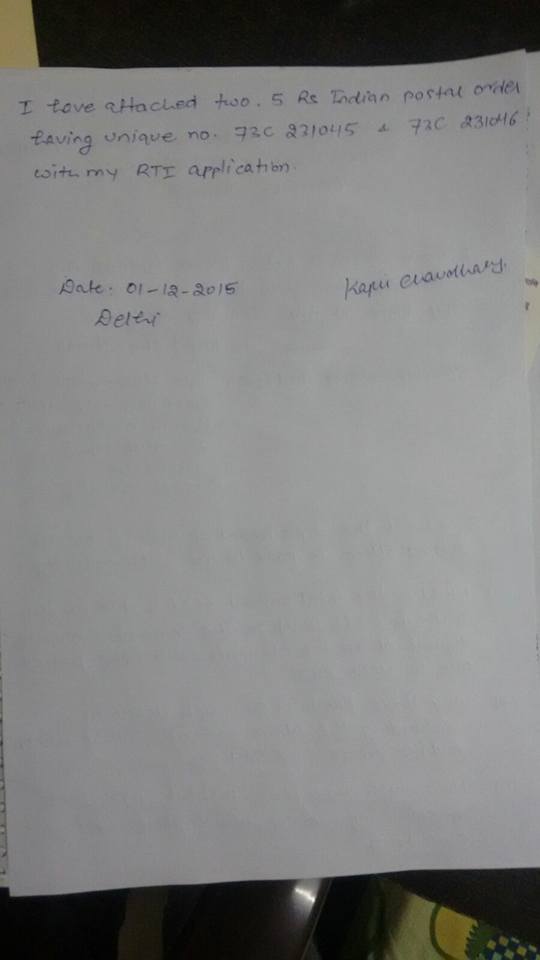 I have attached two. 5 Rs Indian postal order
having unique no. 73C 231045 & 73C 231046
with my RTI application.
Date: 01-12-2015
Kapil Chaudhary.
Delhi